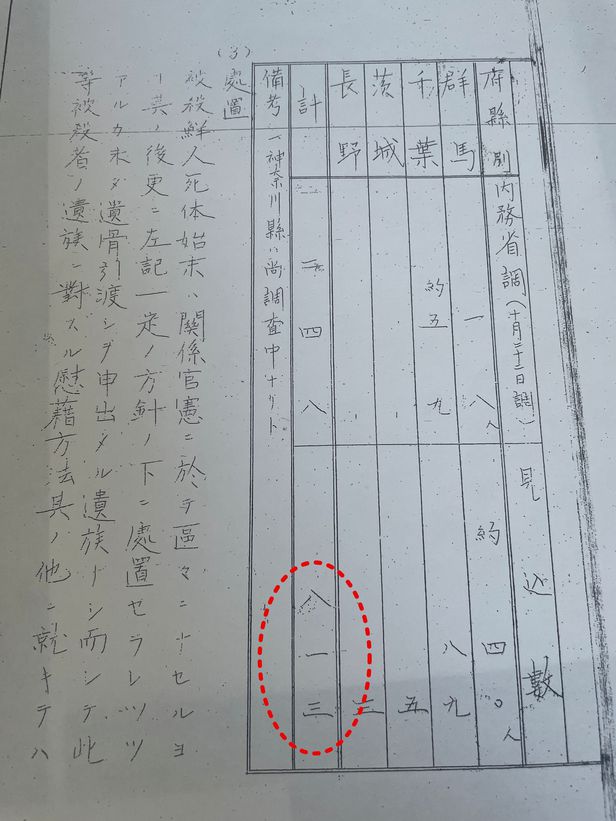 府縣別 内務省調(十月二十二日調) 見込數
群馬 一八人 約四〇人
千葉 約五九 八九
茨城 五
長野 三
計 二四八 八一三
備考 一神奈川縣ハ尚調査中ナリト
(3) 處置
被殺鮮人死体始末ハ關係官憲ニ於テ區々ニナセルヨ
リ其ノ後更ニ左記一定ノ方針ノ下ニ處置セラレツツ
アルカ未タ遺骨引渡シヲ申出タル遺族ナシ而シテ此
等被殺者ノ遺族ニ對スル慰藉方法其ノ他ニ就キテハ